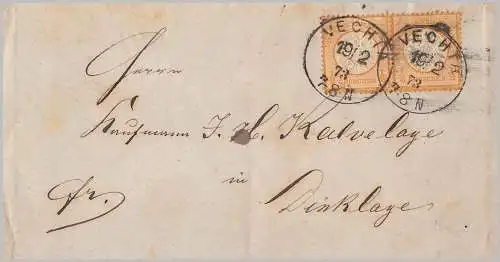 VECHTA VECHTA
19 2 19 2
73 73
7-8 N 7-8 N
Herrn
Kaufmann J. H. Kalvelage
fr. in
Dinklage